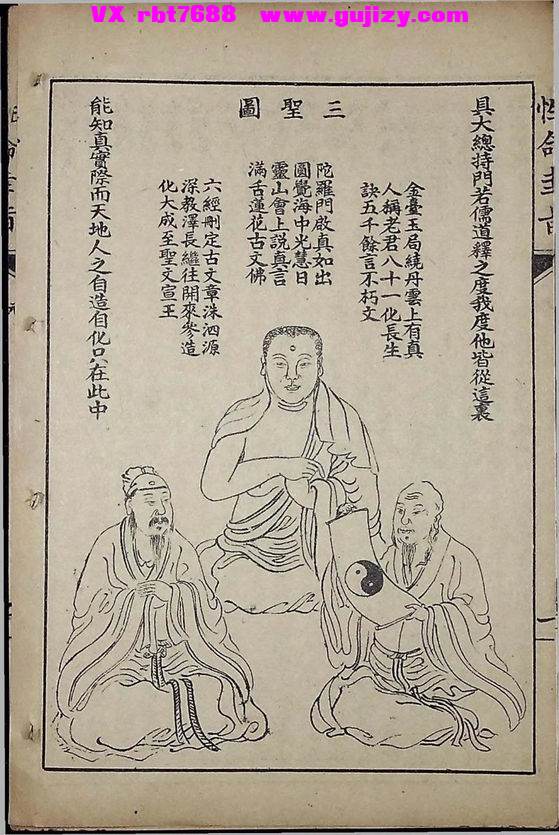 VX rbt7688 www.gujizy.com
三聖圖
具大總持門若儒道釋之度我度他皆從這裏
金臺玉局繞丹雲上有真
人稱老君八十一化長生
訣五千餘言不朽文
陀羅門啟真如出
圓覺海中光慧日
靈山會上說真言
滿舌蓮花古文佛
六經刪定古文章洙泗源
深教澤長繼往開來參造
化大成至聖文宣王
能知真實際而天地人之自造自化只在此中